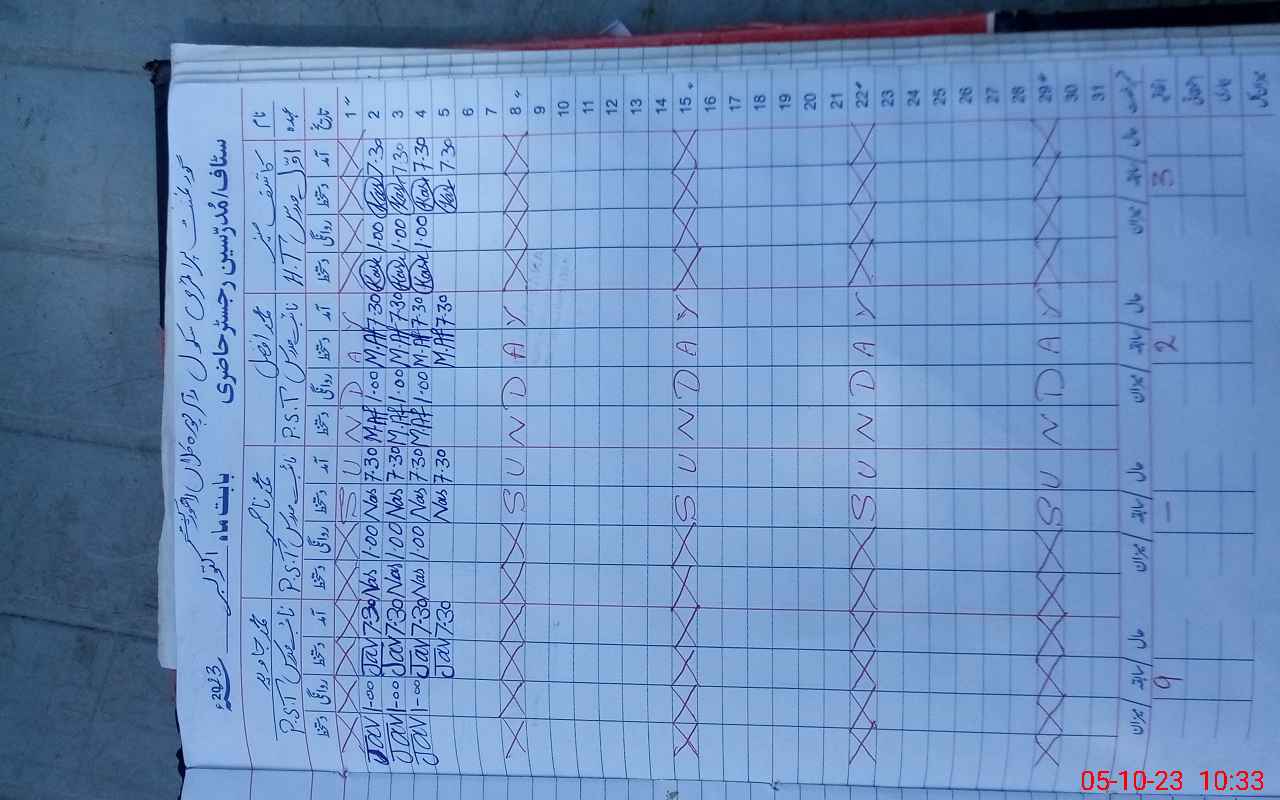 گورنمنٹ پرائمری سکول
سٹاف/مُدرّسین رجسٹر حاضری بابت ماہ اکتوبر 2023ء
نام کاشف محمد افضل محمد ناصر محمد جاوید
عہدہ اوّل مدرس H.T نائب مدرس P.S.T نائب مدرس P.S.T نائب مدرس P.S.T
تاریخ آمد دستخط روانگی دستخط آمد دستخط روانگی دستخط آمد دستخط روانگی دستخط آمد دستخط روانگی دستخط
1 S U N D A Y
2 7.30 Kas 1.00 Kas 7.30 M.Af 1.00 M.Af 7.30 Nas 1.00 Nas 7.30 Jav 1-00 Jav
3 7.30 Kas 1.00 Kas 7.30 M.Af 1.00 M.Af 7.30 Nas 1.00 Nas 7.30 Jav 1-00 Jav
4 7.30 Kas 1.00 Kas 7.30 M.Af 1.00 M.Af 7.30 Nas 1.00 Nas 7.30 Jav 1-00 Jav
5 7.30 Kas 7.30 M.Af 7.30 Nas 7.30 Jav
6
7
8 S U N D A Y
9
10
11
12
13
14
15 S U N D A Y
16
17
18
19
20
21
22 S U N D A Y
23
24
25
26
27
28
29 S U N D A Y
30
31
حال سابقہ میزان حال سابقہ میزان حال سابقہ میزان حال سابقہ میزان
اتفاقیہ 3 2 1 9
میزان
05-10-23 10:33